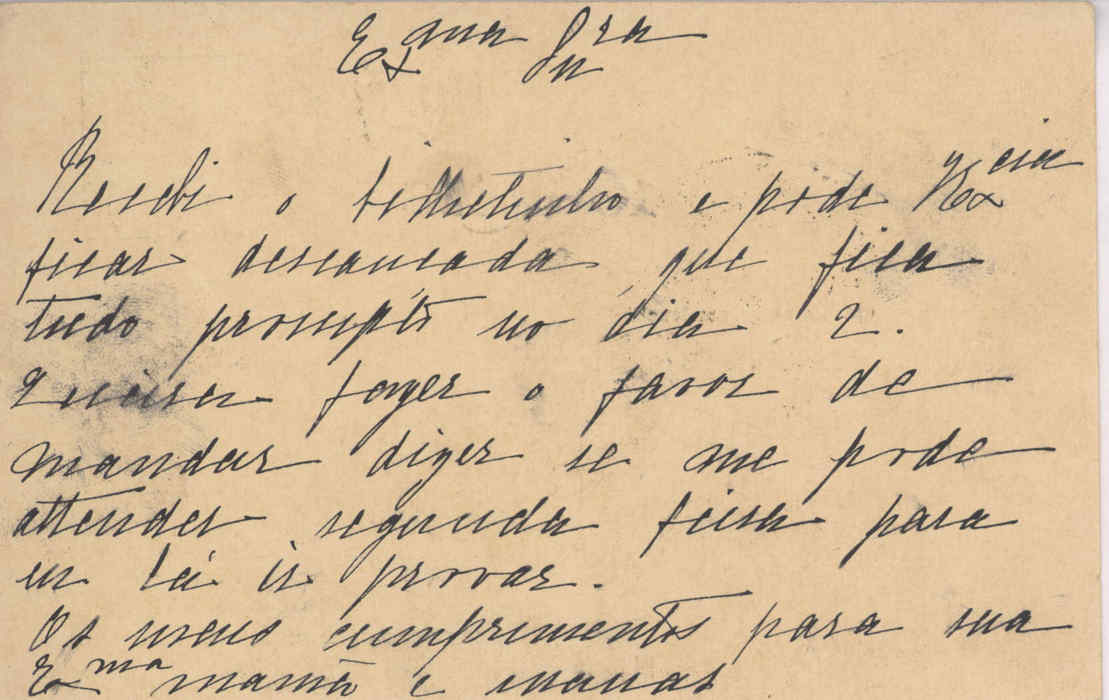 Exma Snra
Recebi o bilhetinho e pode V Excia
ficar descançada que fica
tudo prompto no dia 2.
Queira fazer o favor de
mandar dizer se me pode
attender segunda feira para
eu lá ir provar.
Os meus cumprimentos para sua
Exma mamã e manas